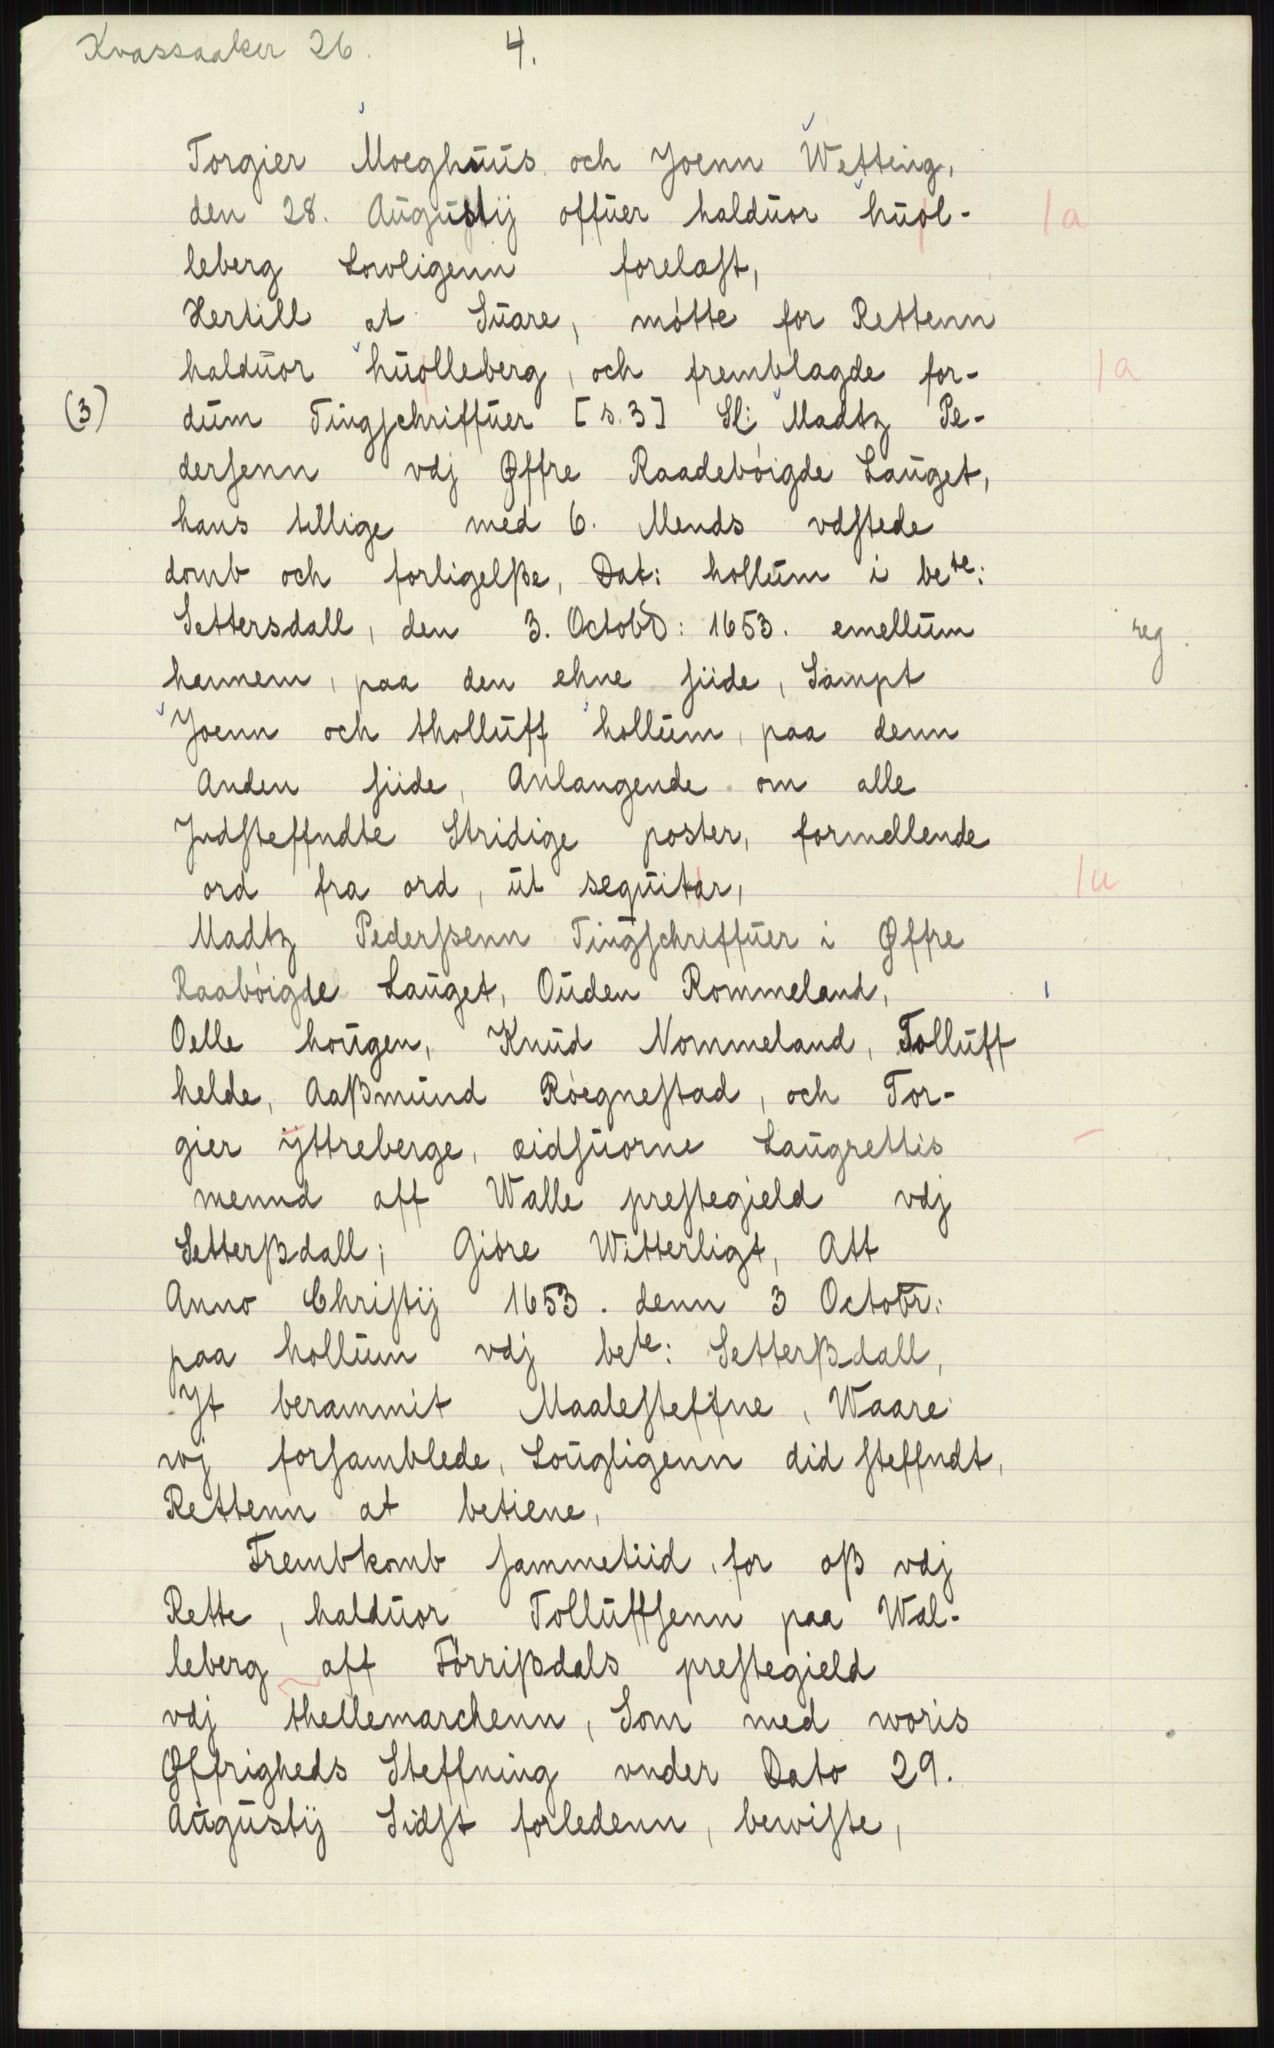 Kvassaaker 26.
4.
Torgier Moeghuus och Joenn Wetting,
den 28. Augustij offuer halduor huol-
leberg Lowligenn forelæst,
Hertill at Suare, møtte for Rettenn
halduor huolleberg, och fremblagde for-
(3) dum Tingschriffuer [s. 3] Sl: Madtz Pe-
dersenn vdj Øffre Raadebøigde Lauget,
hans tillige med 6. Mends vdstede
domb och forligelße, Dat: hollum i bete:
Settersdall, den 3. Octobr: 1653. emellum
hannem, paa den ehne siide, Sampt
Joenn och tholluff hollum, paa denn
Anden siide, Anlangende om alle
Jndsteffndte Stridige poster, formellende
ord fra ord, ut sequitar,
Madtz Pederßenn Tingschriffuer i Øffre
Raabøigde Lauget, Ouden Rommeland,
Oelle hougen, Knud Nommeland, Tolluff
helde, Aaßmund Røegnestad, och Tor-
gier ÿttreberge, eidsuorne Laugrettis
mennd aff Walle prestegield vdj
Setterßdall; Giøre Witterligt, Att
Anno Christij 1653. denn 3 Octobr:
paa hollum vdj bete: Setterßdall,
Jt berammit Maalesteffne, Waare
wj forsamblede, Lougligenn did steffndt,
Rettenn at betiene,
Frembkomb sammetiid, for oß vdj
Rette, halduor Tolluffsenn paa Wal-
leberg aff Førrißdals prestegield
vdj thellemarchenn, Som med woris
Øffrigheds Steffning vnder Dato 29.
Augustij Sidst forledenn, beviste,
/a
/a
reg.
/u